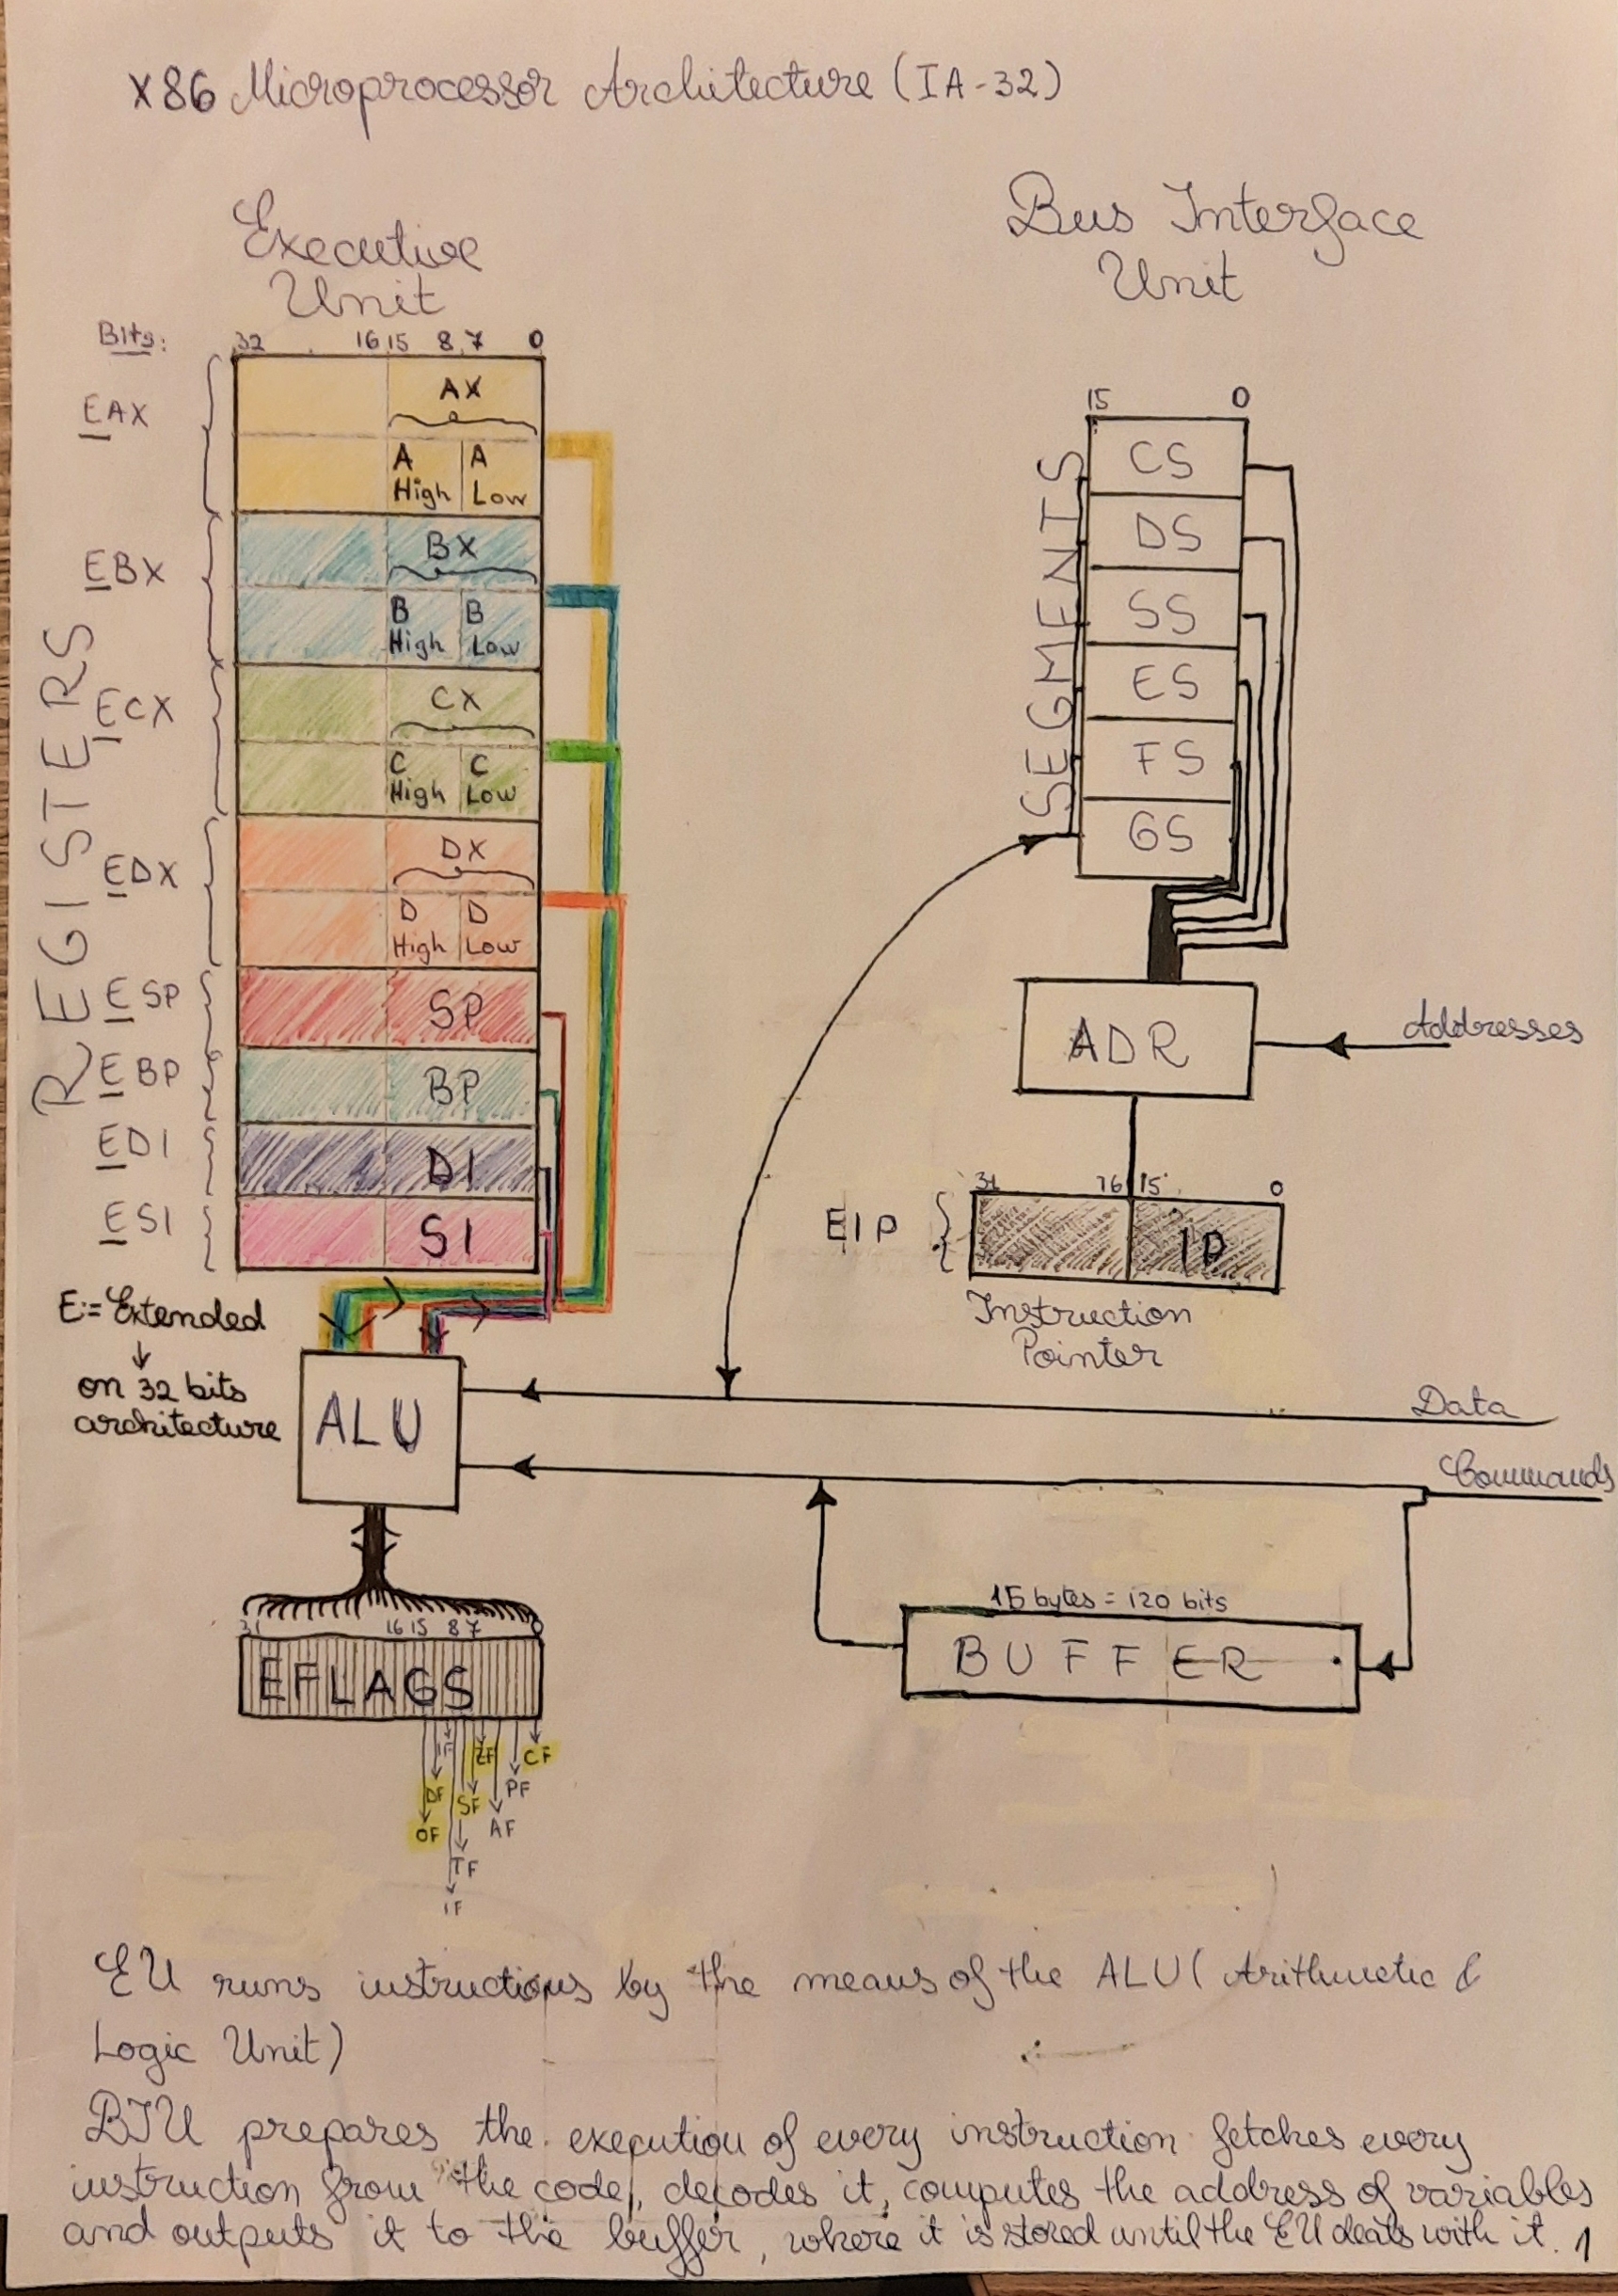 x86 Microprocessor Architecture (IA-32)
Executive
Unit
Bus Interface
Unit
Bits:
32 16 15 8 7 0
REGISTERS
EAX
AX
A High
A Low
EBX
BX
B High
B Low
ECX
CX
C High
C Low
EDX
DX
D High
D Low
ESP
SP
EBP
BP
EDI
DI
ESI
SI
E:= Extended
↓
on 32 bits
architecture
ALU
31 16 15 8 7 0
EFLAGS
CF
PF
AF
ZF
SF
TF
IF
IF
DF
OF
15 0
SEGMENTS
CS
DS
SS
ES
FS
GS
ADR
Addresses
31 16 15 0
EIP
IP
Instruction
Pointer
Data
Commands
15 bytes = 120 bits
BUFFER
EU runs instructions by the means of the ALU (Arithmetic &
Logic Unit)
BIU prepares the execution of every instruction fetches every
instruction from the code, decodes it, computes the address of variables
and outputs it to the buffer, where it is stored until the EU deals with it. 1